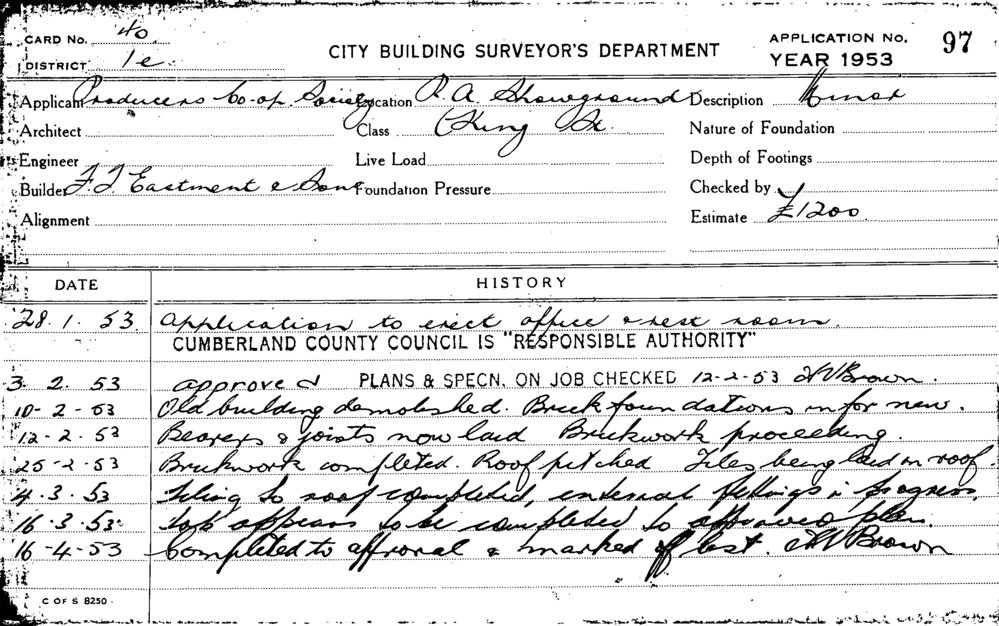 CARD No. 40
DISTRICT 1e.
CITY BUILDING SURVEYOR'S DEPARTMENT
APPLICATION No. 97
YEAR 1953
Applicant Producers Co-op. Society Location R.A. Showground Description Minor
Architect Class (King St. Nature of Foundation
Engineer Live Load Depth of Footings
Builder F. J. Eastment & Sons Foundation Pressure Checked by
Alignment Estimate £1200
DATE HISTORY
28.1.53 Application to erect office & rest room.
CUMBERLAND COUNTY COUNCIL IS "RESPONSIBLE AUTHORITY"
3.2.53 approved PLANS & SPECN. ON JOB CHECKED 12-2-53 HVBrown.
10-2-53 Old building demolished. Brick foundations in for new.
12-2.53 Bearers & joists now laid Brickwork proceeding.
25-2-53 Brickwork completed. Roof pitched Tiles being laid on roof.
4.3.53 Tiling to roof completed, internal fittings in progress.
16.3.53. Job appears to be completed to approved plan.
16-4-53 Completed to approval & marked off list. HVBrown
C OF S 8250